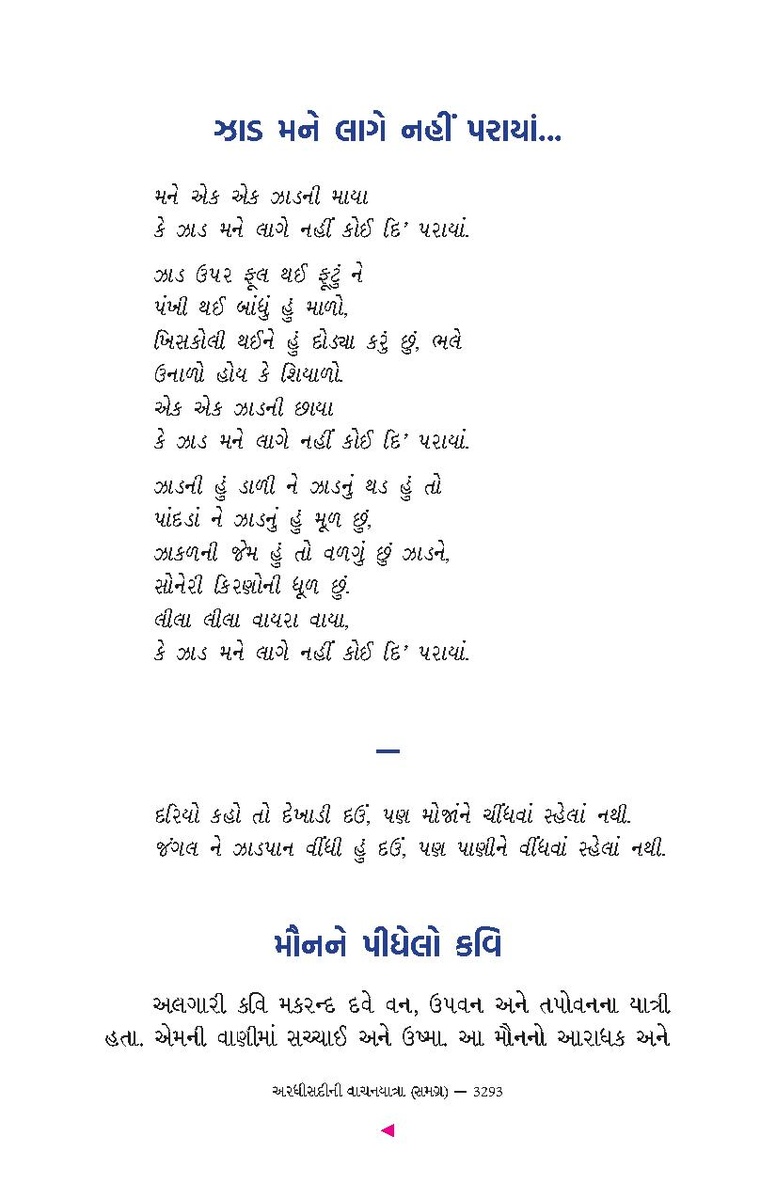 ઝાડ મને લાગે નહીં પરાયાં...
મને એક એક ઝાડની માયા
કે ઝાડ મને લાગે નહીં કોઈ દિ’ પરાયાં.
ઝાડ ઉપર ફૂલ થઈ ફૂટું ને
પંખી થઈ બાંધું હું માળો,
ખિસકોલી થઈને હું દોડ્યા કરું છું, ભલે
ઉનાળો હોય કે શિયાળો.
એક એક ઝાડની છાયા
કે ઝાડ મને લાગે નહીં કોઈ દિ’ પરાયાં.
ઝાડની હું ડાળી ને ઝાડનું થડ હું તો
પાંદડાં ને ઝાડનું હું મૂળ છું,
ઝાકળની જેમ હું તો વળગું છું ઝાડને,
સોનેરી કિરણોની ધૂળ છું.
લીલા લીલા વાયરા વાયા,
કે ઝાડ મને લાગે નહીં કોઈ દિ’ પરાયાં.
—
દરિયો કહો તો દેખાડી દઉં, પણ મોજાંને ચીંધવાં સ્હેલાં નથી.
જંગલ ને ઝાડપાન વીંધી હું દઉં, પણ પાણીને વીંધવાં સ્હેલાં નથી.
મૌનને પીધેલો કવિ
અલગારી કવિ મકરન્દ દવે વન, ઉપવન અને તપોવનના યાત્રી
હતા. એમની વાણીમાં સચ્ચાઈ અને ઉષ્મા. આ મૌનનો આરાધક અને
અરધીસદીની વાચનયાત્રા (સમગ્ર) — 3293